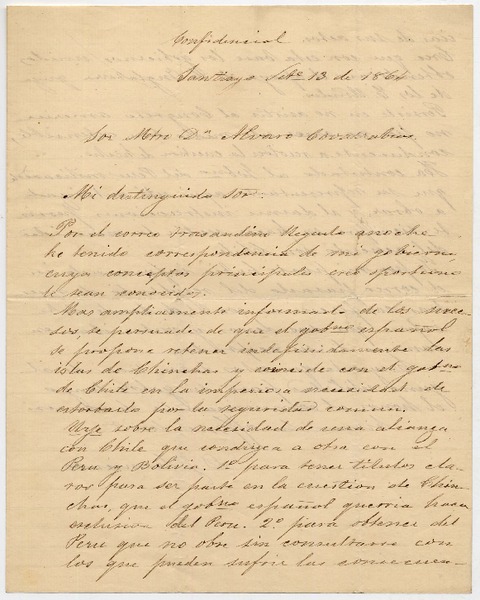 Confidencial
Santiago Set.e 13 de 1864
Sor Mtro Dn Alvaro Covarrubias
Mi distinguido Sor:
Por el correo trasandino llegado anoche
he tenido correspondencia de mi gobierno
cuyos conceptos principales creo oportuno
le sean conocidos.
Mas ampliamente informado de los suce-
sos, se persuade de que el gobno español
se propone retener indefinidamente las
islas de Chinchas y coincide con el gobno
de Chile en la imperiosa necesidad de
estorbarlo por la seguridad comun.
Urje sobre la necesidad de una alianza
con Chile que conduzca a otra con el
Peru y Bolivia. 1o para tener titulos cla-
ros para ser parte en la cuestion de Chin-
chas, que el gobno español querria hacer
exclusiva del Peru. 2o para obtener del
Peru que no obre sin consultarse con
los que pueden sufrir las consecuen-